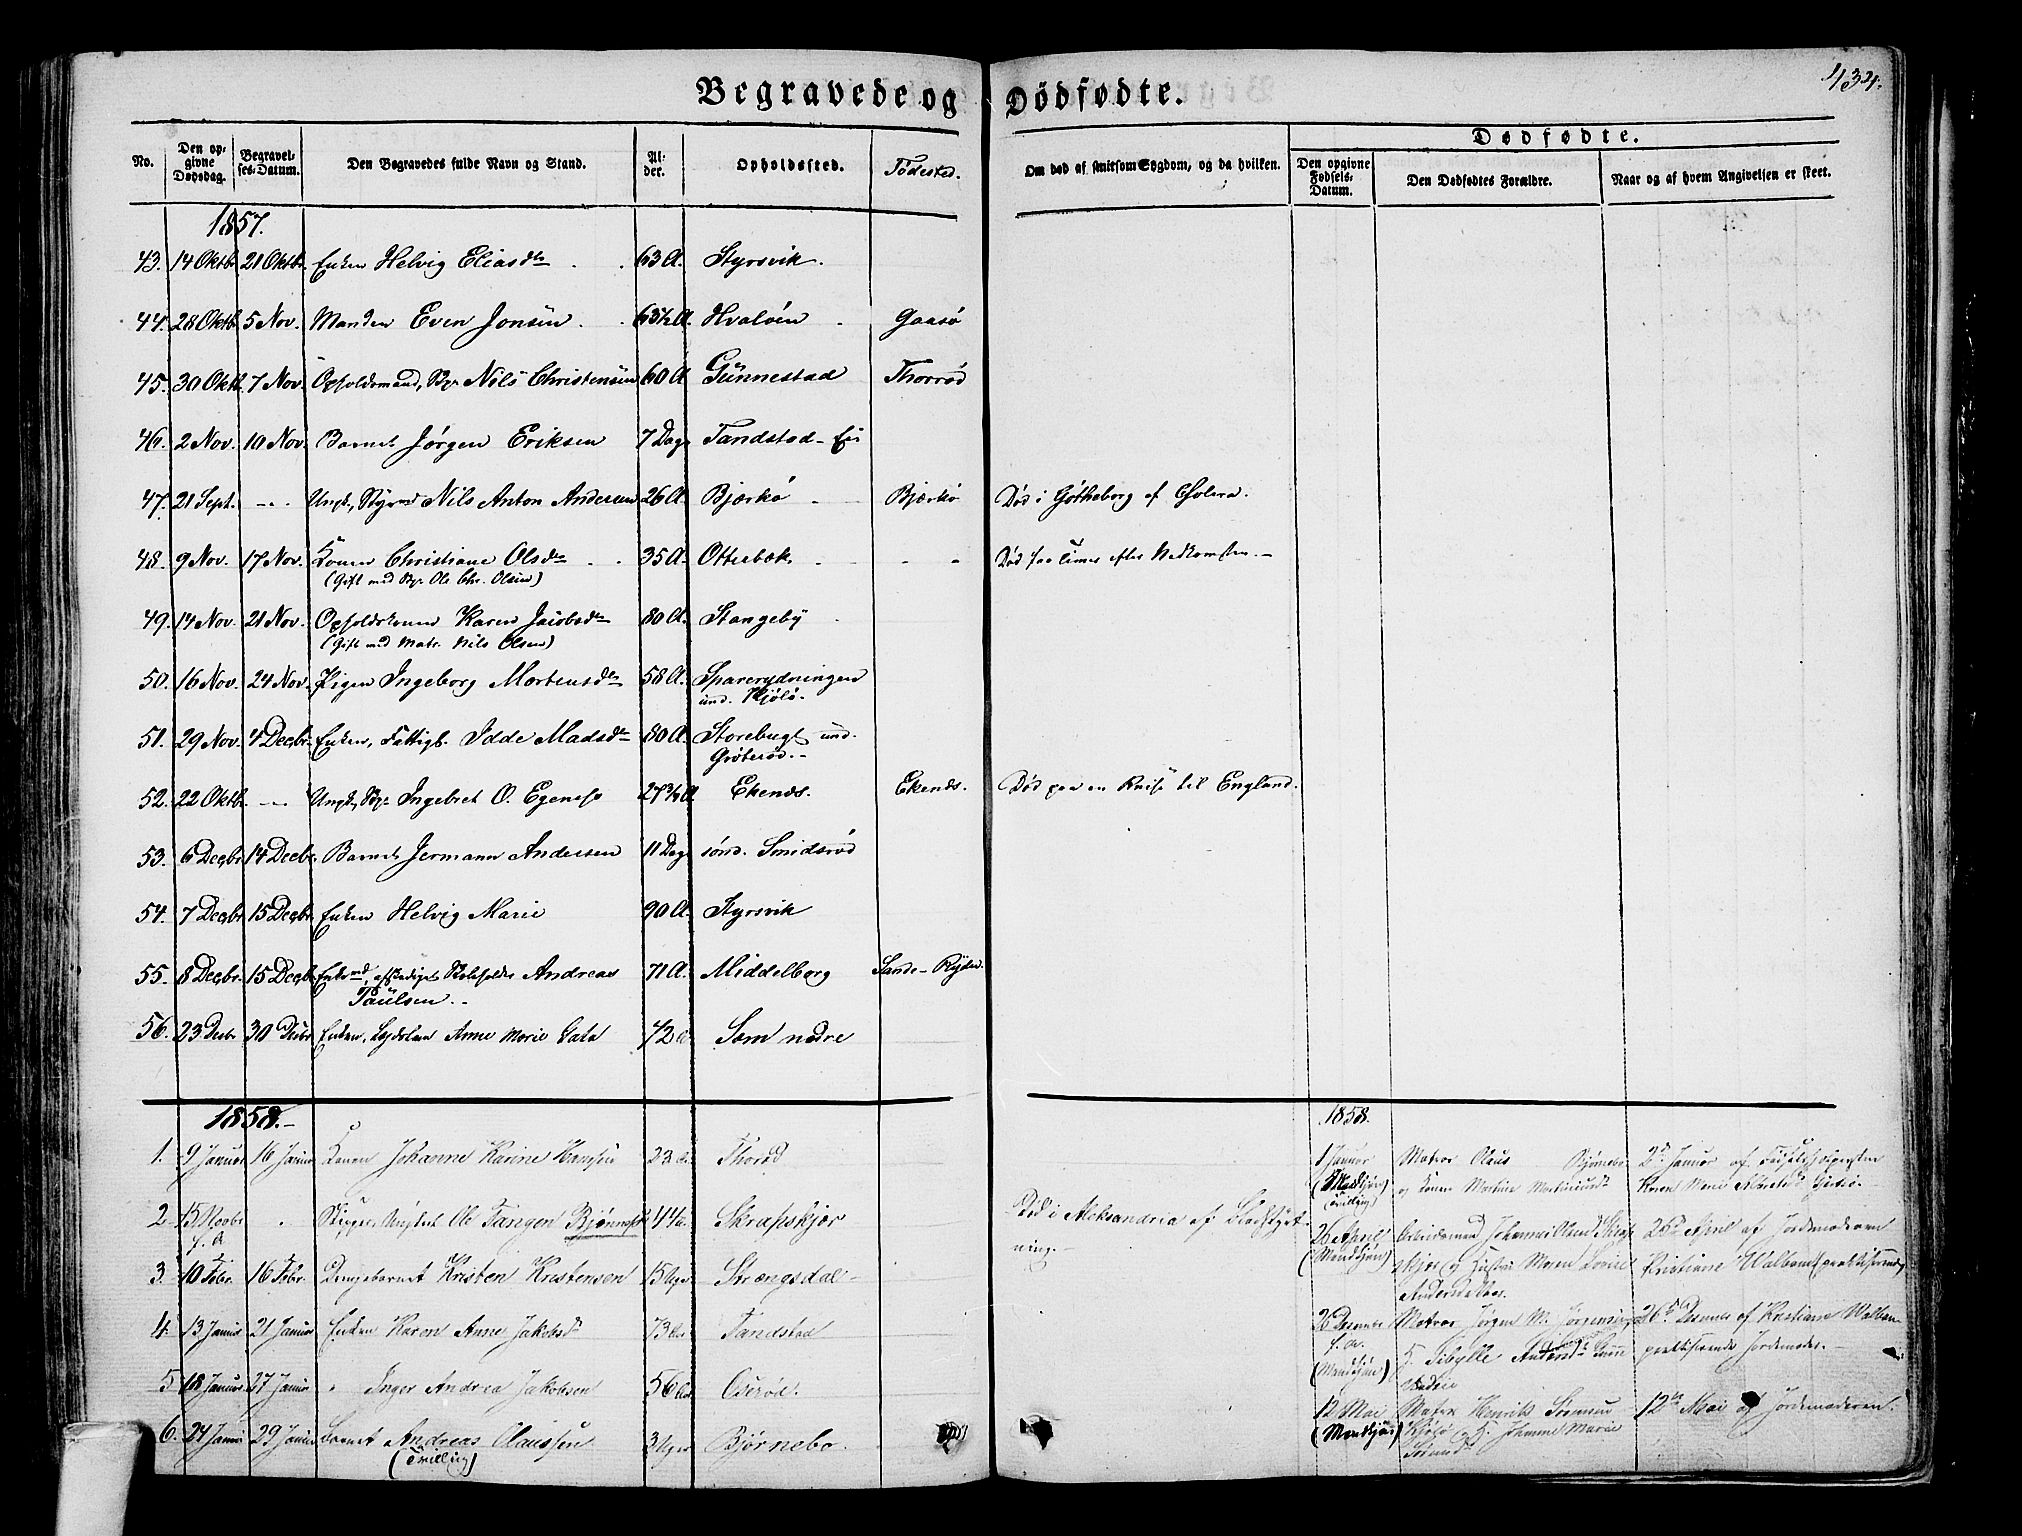 Begravede og Dødfødte.
434.
No. Den opgivne Dødsdag. Begravelses-Datum. Den Begravedes fulde Navn og Stand. Alder. Opholdssted. Fødested. Om død af smitsom Sygdom, og da hvilken. Dødfødte. Den opgivne Fødsels-Datum. Den Dødfødtes Forældre. Naar og af hvem Angivelsen er skeet.
1857.
43. 14 Oktbr 21 Oktbr. Enken Helvig Eliasdtr 63 A. Styrsvik.
44. 28 Oktbr 5 Nov. Manden Even Jonsen 63½ A. Hvaløen Gaasø
45. 30 Oktbr 7 Nov. Opholdsmand, Nils Christensen 60 A Gunnestad Thorrød
46. 2 Nov. 10 Nov. Barnet Jørgen Eriksen 7 Dage Tandstad-Eie
47. 21 Sept. -.- Ungk. Styrmd Nils Anton Andersen 26 A. Bjerkø Bjerkø Død i Gøtheborg af Cholera.
48. 9 Nov. 17 Nov. Konen Christiane Olsdtr 35 A. Otterbæk Død faa Timer efter Nedkomsten.-
(Gift med Ole Chr. Olsen)
49. 14 Nov. 21 Nov. Opholdskonen Karen Jacobsdtr 80 A. Stangeby
(Gift med Matr. Nils Olsen)
50. 16 Nov. 24 Nov. Pigen Ingeborg Mortensdtr 58 A. Sparerydningen
und. Kjølø.
51. 29 Nov. 4 Decbr. Enken, Fattigl. Idde Madsdtr 80 A. Storebugt und.
Grøterød.-
52. 22 Oktbr -.- Ungk. Ingebret O. Egenes 27¾ A Ekenæs. Ekenæs. Død paa en Reise til England.
53. 6 Decbr 14 Decbr. Barnet Hermann Andersen 11 Dage sønd. Smidsrød
54. 7 Decbr 15 Decbr. Enken Helvig Marie 90 A. Styrsvik
55. 8 Decbr. 15 Decbr Enkemd, afskediget Skoleholder Andreas 71 A. Middelborg Sande-Rygden.
Paulsen.-
56. 23 Decbr 30 Decbr Enken, Anne Marie 42 A. Sem nedre
1858.-
1858.
1. 9 Januar 16 Januar Konen Johanne Karine Hansen 23 Aar Thorød
1 Januar Matros Olaus Bjørnebo 2den Januar af Fødselshjelpersken
(Mandkjøn) og Konen Martine Martiniusdtr Karen Marie
(Tvilling)
2. 15 Novbr f. A. Skipper, Ungkarl Ole Tangen Bjønness 44 Aar Skrapskjær Død i Aleksandria af Blodstyrtning.-
26 April Arbeidsmand Johannes Olsen 26de April af Jordemoderen
(Mandkjøn) og Hustru Maren Lovise Kristiane Walbom (praktiserende)
Andersdatter.
3. 10 Febr. 16 Febr. Drengebarnet Kristen Kristensen 15 Uger Strengsdal-
4. 13 Januar 21 Januar Enken Karen Anne Jakobsdtr 73 Aar Tandstad
26 f. A. Matros Jørgen M. Jørgensen 26de af Kristiane Walbom
(Mandkjøn) Sibylle Andersdtr praktiserende Jordemoder.-
5. 18 Januar 27 Januar " Inger Andrea Jakobsen 56 Aar Oserød.
6. 24 Januar 29 Januar Barnet Andreas Olaussen 3 Uger Bjørnebo.
(Tvilling)
12 Mai Matros Henrik Sørensen 12te Mai af Jordemoderen.
(Mandkjøn) Kjølø og H. Johanne Marie